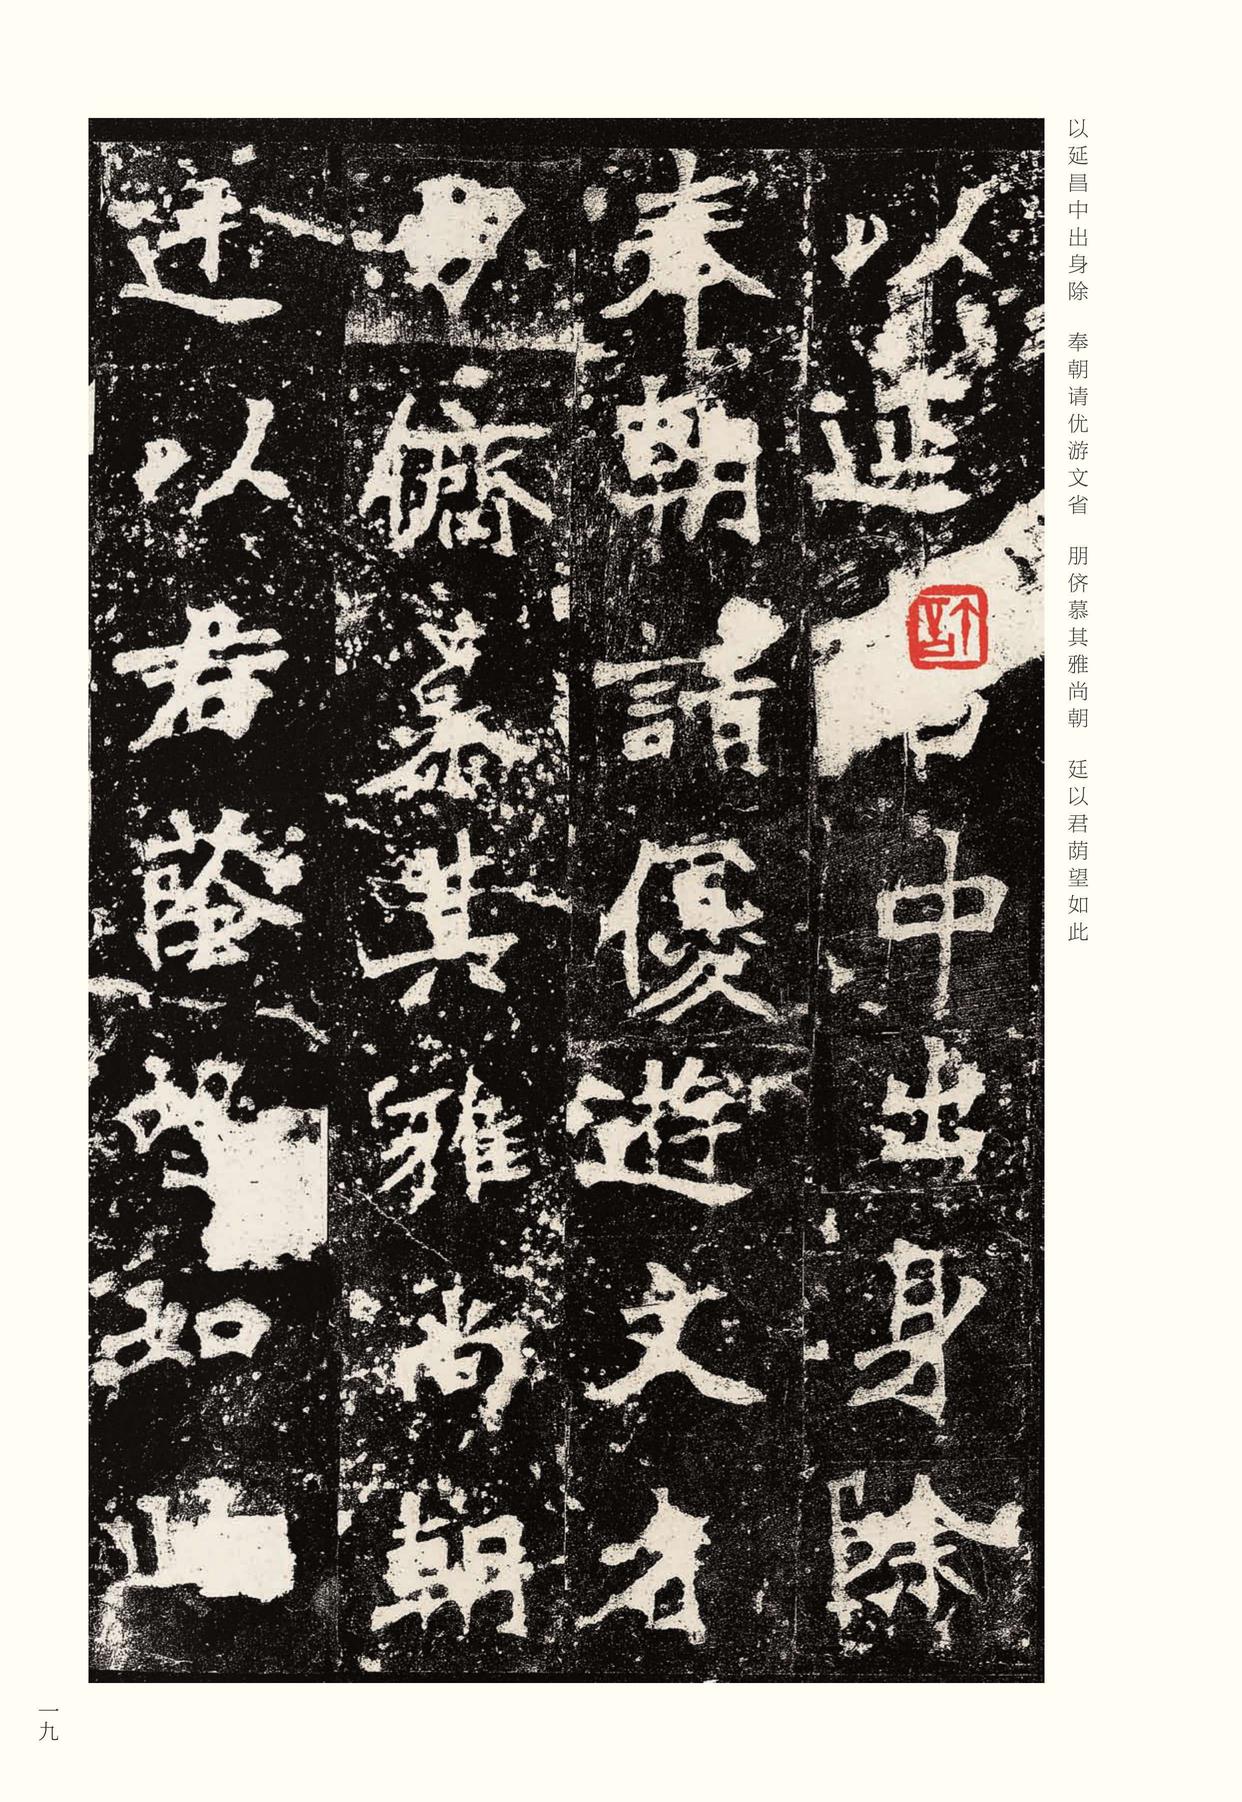 以延昌中出身除　奉朝请优游文省　朋侪慕其雅尚朝　廷以君荫望如此
以延昌中出身除
奉朝請優遊文省
朋儕慕其雅尚朝
廷以君蔭望如此
一九